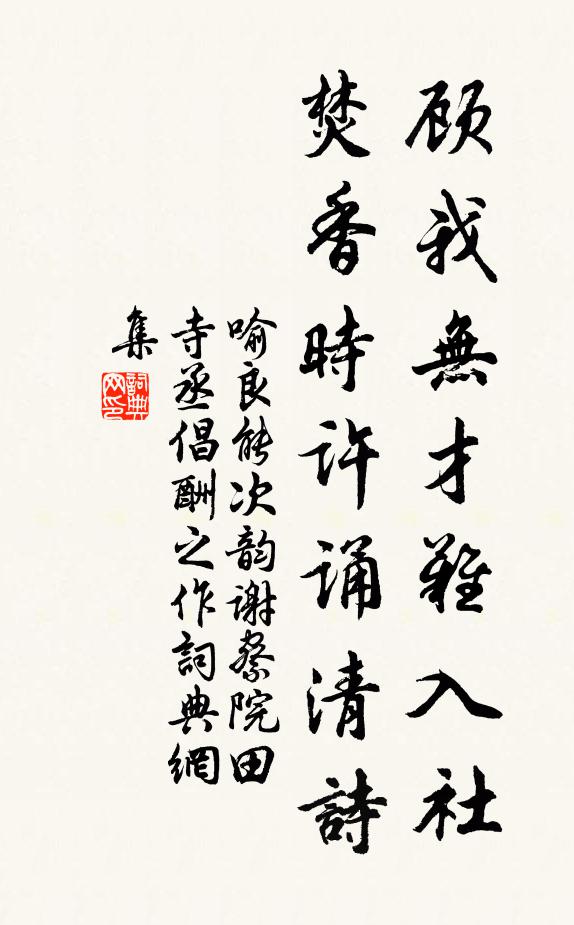 顾我無才難入社
焚香時許诵清詩
喻良能次韵谢察院田
寺丞倡酬之作詞典網
集
詞典
网印